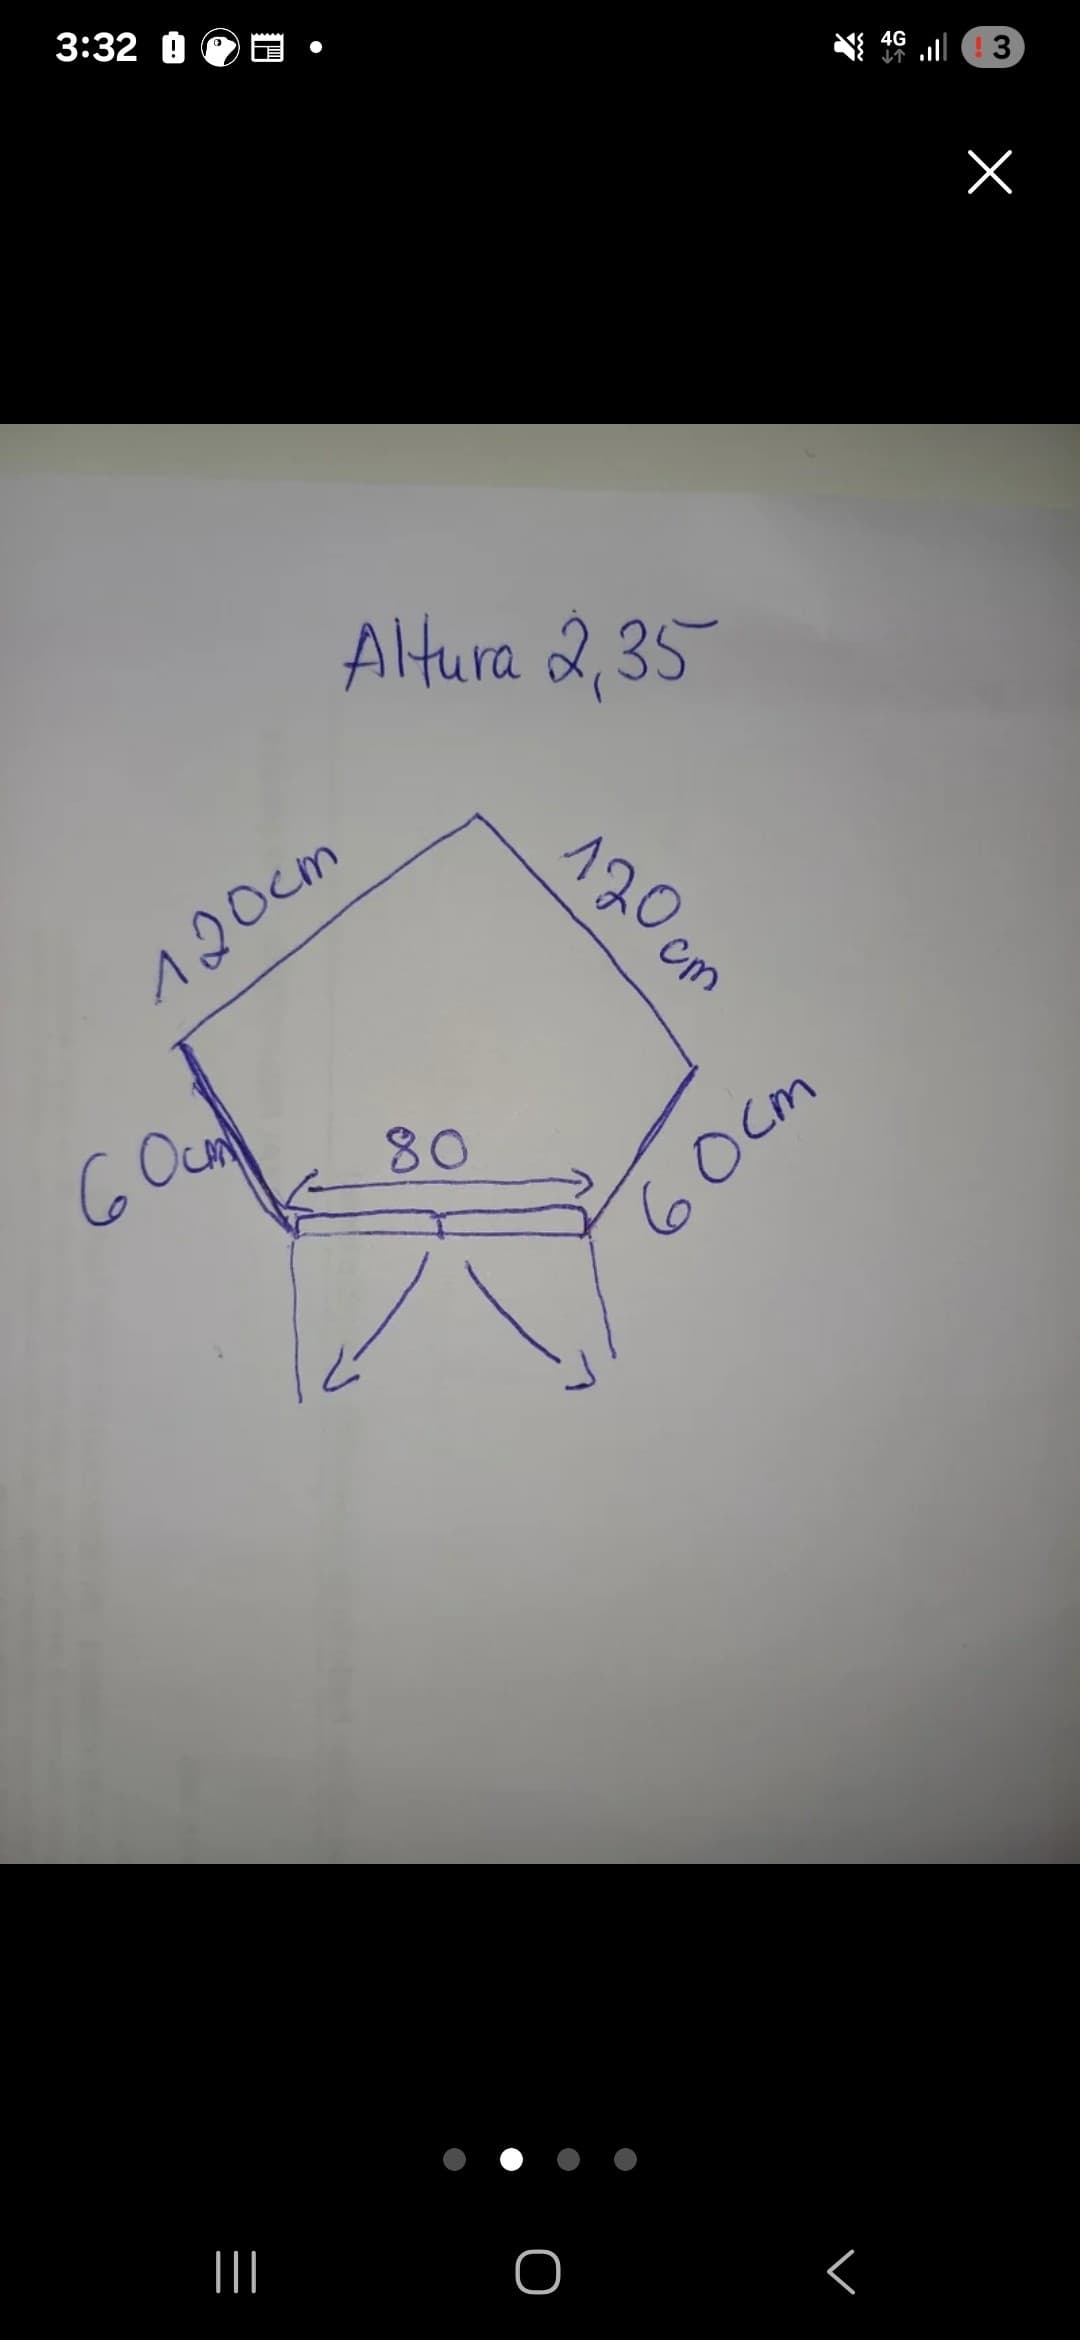 3:32
4G
! 3
Altura 2,35
120cm
120cm
60cm
80
60cm